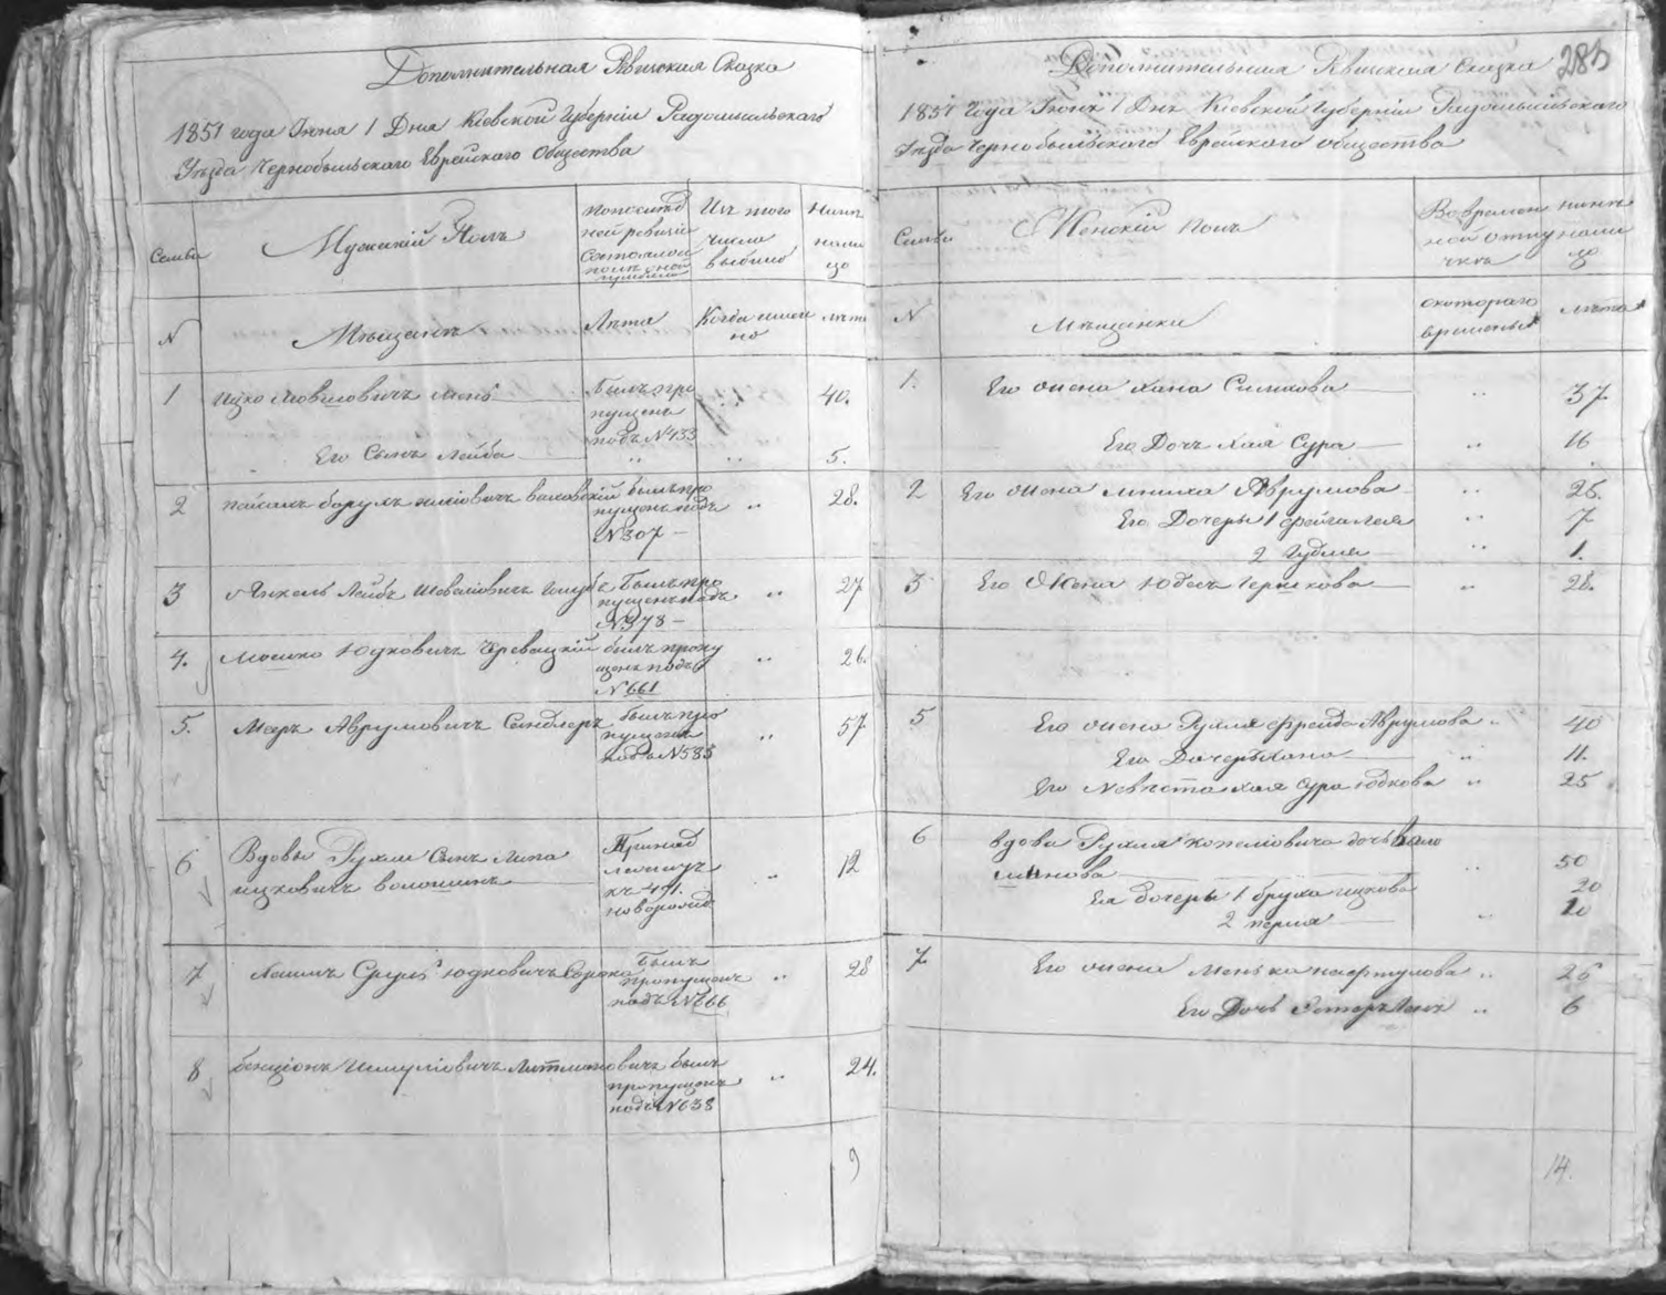 Дополнительная Ревизская Сказка
1851 года Июня 1 Дня Киевской Губернии Радомысльскаго
Уезда Чернобыльскаго Еврейскаго Общества
Семьи
Мужеский Полъ
По последней ревизии состояло и после оной прибыло
Изъ того числа выбыло
Ныне налицо
N
Мещане
Лета
Когда именно
лета
1 Ицко Мовшовичъ был пропущенъ подъ N433 40.
Его Сынъ Лейба " " 5.
2 Пейсахъ Борухъ был пропущенъ подъ N307 " 28.
3 Янкель Лейбъ был пропущенъ подъ N378 " 27
4. Мошко Юдковичъ Чревацкий былъ пропущенъ подъ N661 " 26.
5. Мееръ Аврумовичъ Сандлеръ былъ пропущенъ подъ N585 " 57
6 Вдовы Рухли Сынъ Липа
Ицковичъ Волошинъ новорожд " 12
7 Сруль Юдковичъ Сорока Былъ пропущенъ подъ N666 " 28
8 Бенционъ Шмулиовичъ Литмановичъ былъ пропущенъ подъ N638 " 24.
9
Дополнительная Ревизская Сказка
285
1851 Года Июня 1 Дня Киевской Губернии Радомысльскаго
Уезда Чернобыльскаго Еврейскаго общества
Семьи
Женский полъ
Во временной отлучке
ныне налицо
N
Мещанки
с котораго времени
лета
1. Его жена Хана Симхова " 37.
Его Дочъ Хая Сура " 16
2 Его жена Аврумова " 26.
Его Дочеры 1 Фейга Лея " 7
2 Гудля " 1.
3 Его Жена Юдесъ Гершкова " 28.
5 Его жена Рухля Фрейда Аврумова " 40
Его Дочеръ Хана " 11.
Его Невестка Хая Сура Юдкова " 25
6 Вдова Рухля дочь
" 50
Ея дочеры 1 Бруха Ицкова 20
2 Перля " 10
7 Его жена " 26
Его Дочъ " 6
14.